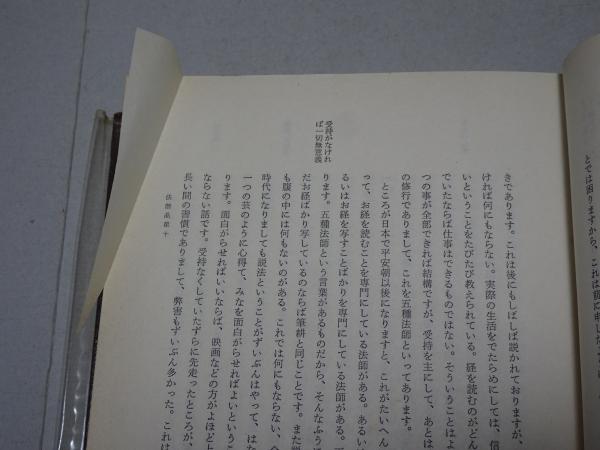 とでは困りますから、これは後に申し
きであります。これは後にもしばしば説かれておりますが、
ければ何にもならない。実際の生活をでたらめにしては、信
いということをたびたび教えられている。経を読むのがどん
でいたならば仕事はできるものではない。そういうことはよ
つの事が全部できれば結構ですが、受持を主にして、あとは
の修行でありまして、これを五種法師といってあります。
受持がなけれ
ば一切無意義
ところが日本で平安朝以後になりますと、これがたいへん
って、お経を読むことを専門にしている法師がある。あるい
るいはお経を写すことばかりを専門にしている法師がある。
ります。五種法師という言葉があるものだから、そんなふう
だお経ばかり写しているのならば筆耕と同じことです。また
も腹の中には何もないのがある。これでは何にもならない。
時代になりましても説法ということがずいぶんはやって、はな
一つの芸のように心得て、みなを面白がらせればよいというこ
ります。面白がらせればいいならば、映画などの方がよほど
ならない話です。受持なくしていたずらに先走ったところが、
長い間の習慣でありまして、弊害もずいぶん多かった。これは
法師品第十